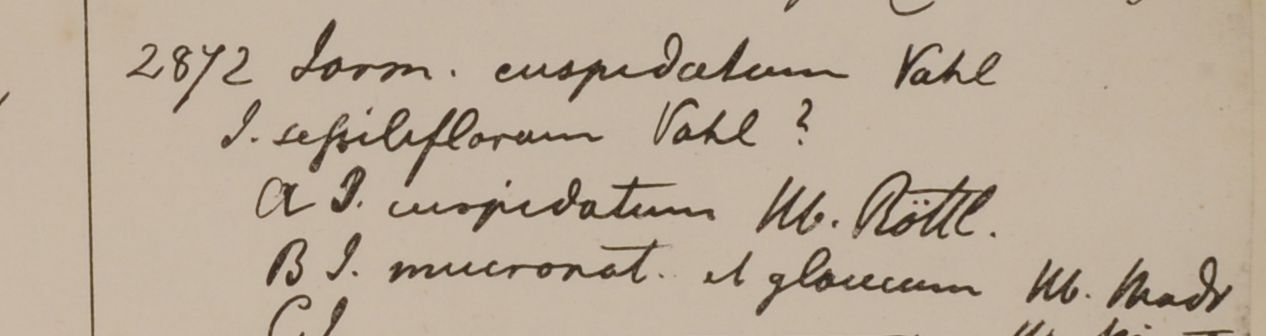 2872 Iasm. cuspidatum Vahl
I. sessiliflorum Vahl ?
A I. cuspidatum Hb. Röttl.
B I. mucronat. et glaucum Hb. Madr
C I.